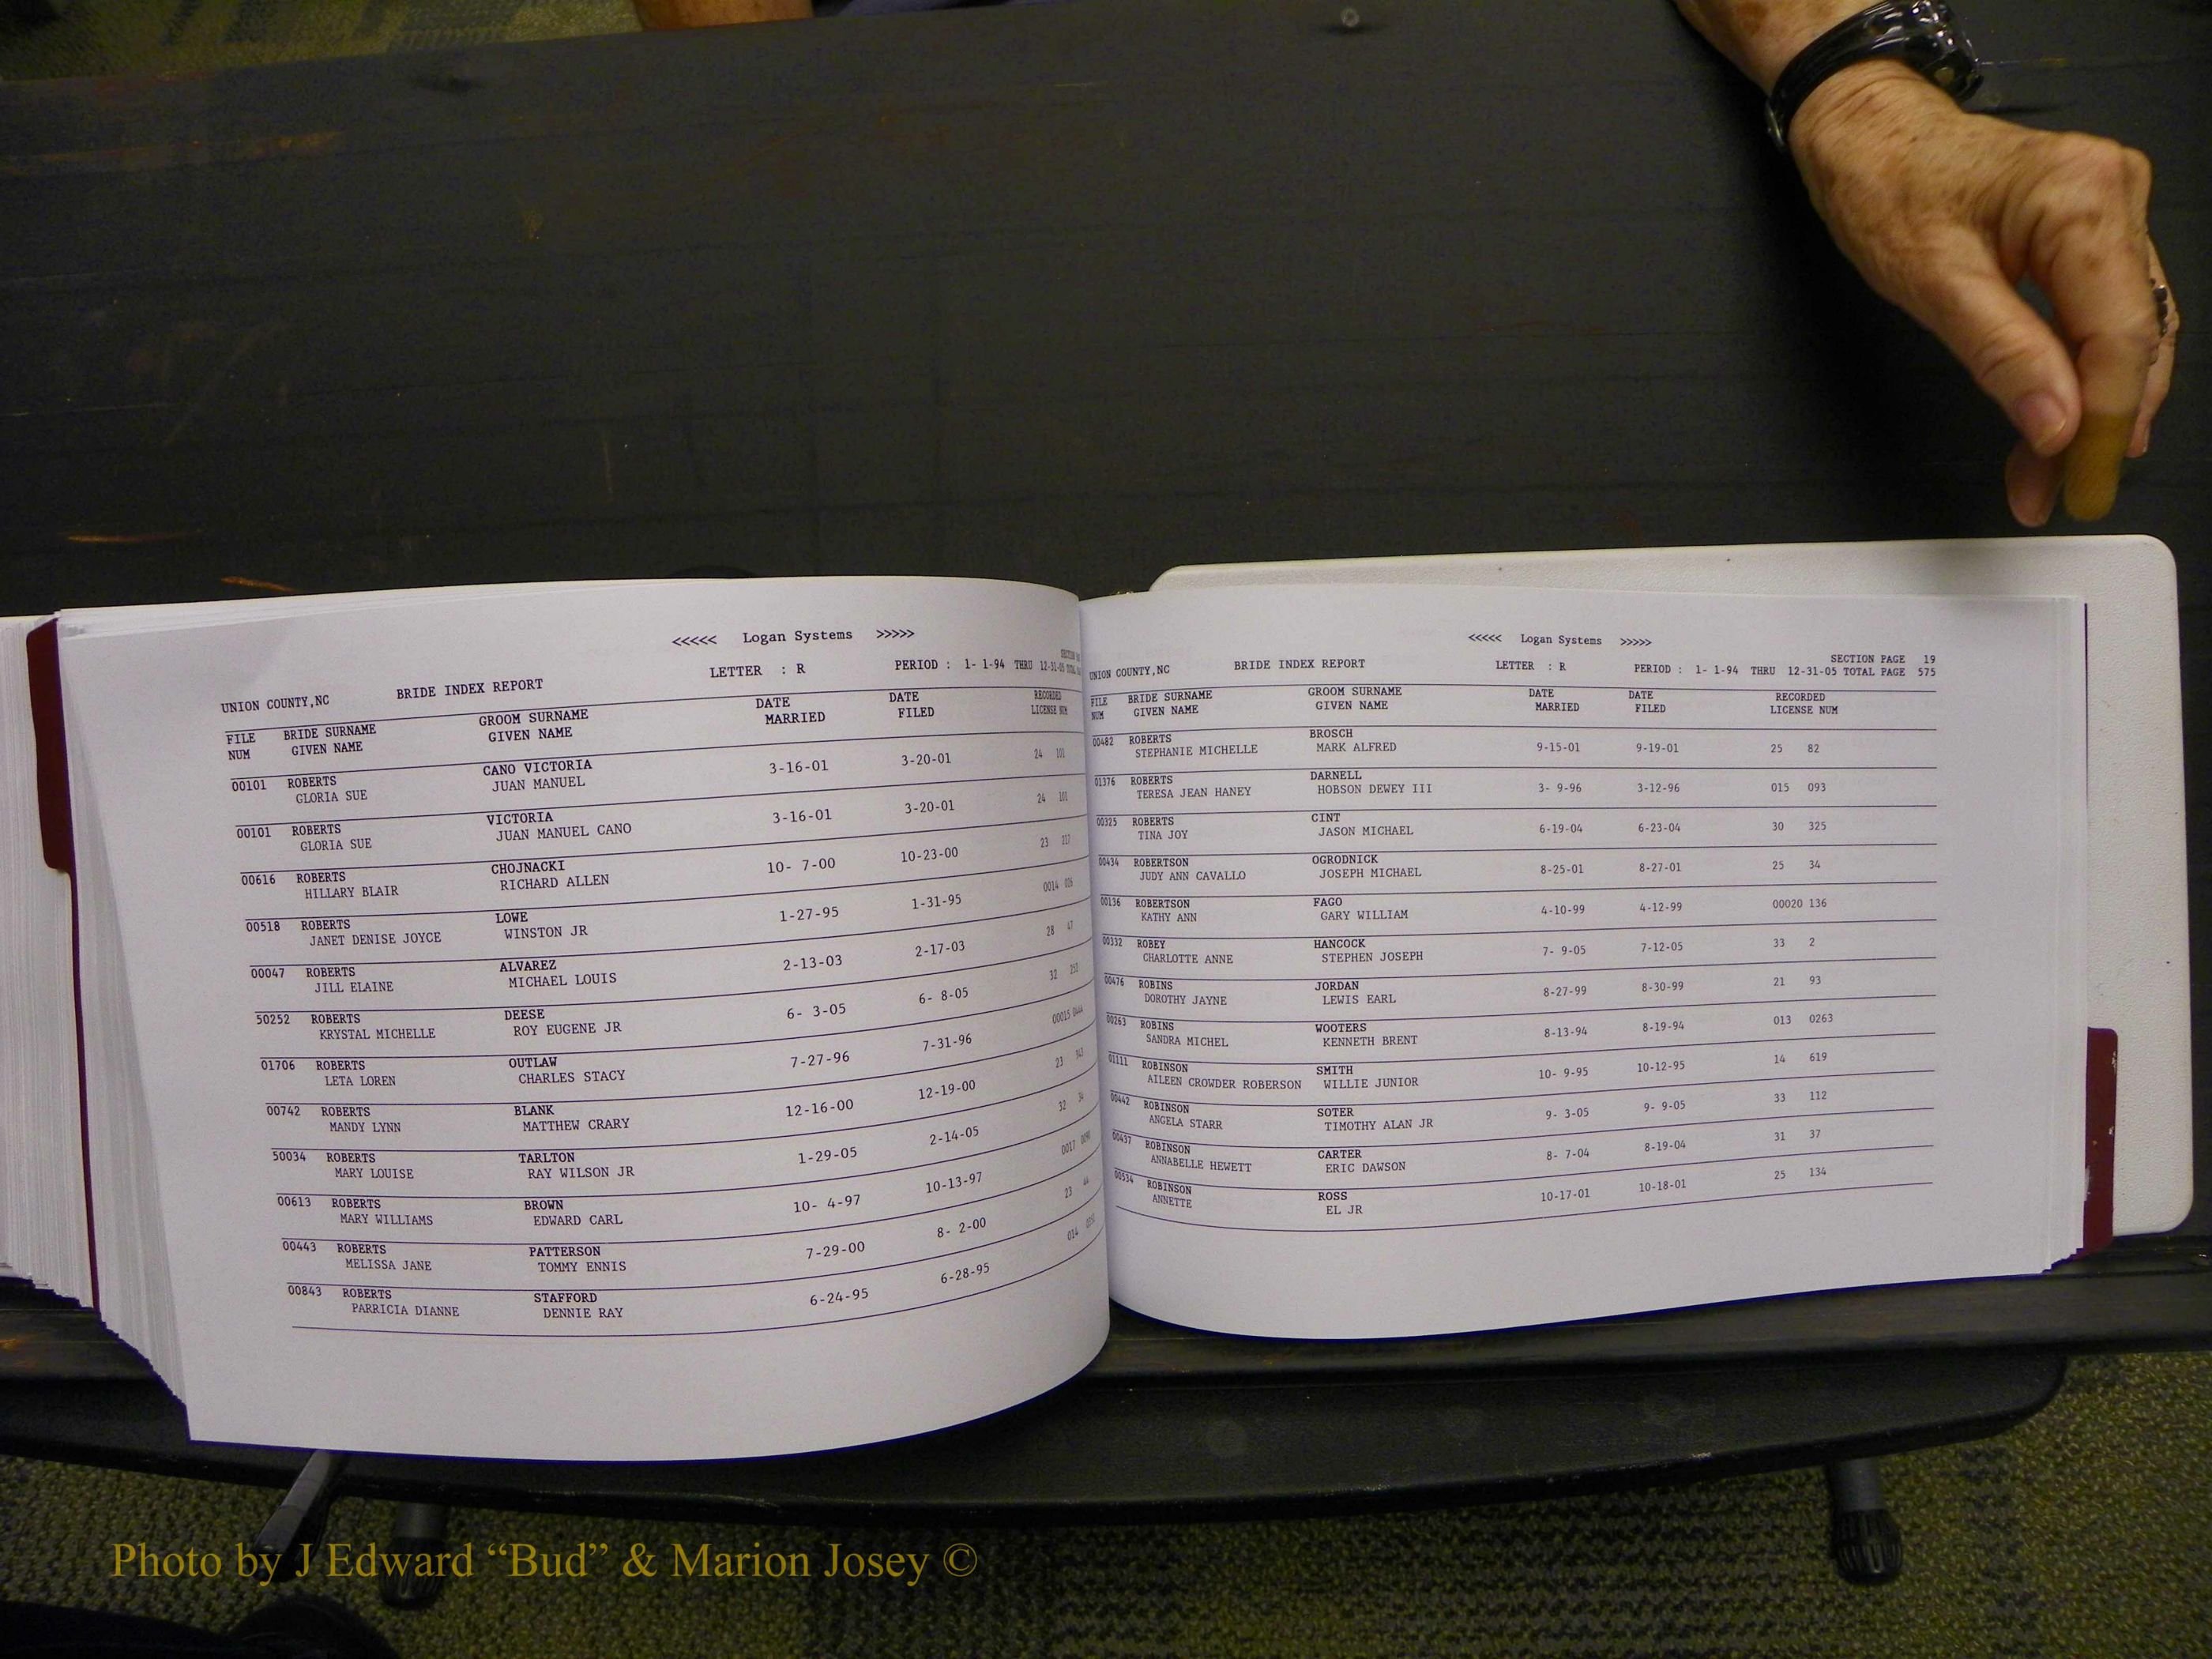 <<<<< Logan Systems >>>>>
UNION COUNTY,NC BRIDE INDEX REPORT LETTER : R PERIOD : 1- 1-94 THRU 12-31-05
FILE BRIDE SURNAME GROOM SURNAME DATE DATE RECORDED
NUM GIVEN NAME GIVEN NAME MARRIED FILED LICENSE NUM
00101 ROBERTS CANO VICTORIA 3-16-01 3-20-01 24 101
GLORIA SUE JUAN MANUEL
00101 ROBERTS VICTORIA 3-16-01 3-20-01 24 101
GLORIA SUE JUAN MANUEL CANO
00616 ROBERTS CHOJNACKI 10- 7-00 10-23-00 23
HILLARY BLAIR RICHARD ALLEN
00518 ROBERTS LOWE 1-27-95 1-31-95 0014
JANET DENISE JOYCE WINSTON JR
00047 ROBERTS ALVAREZ 2-13-03 2-17-03 28 47
JILL ELAINE MICHAEL LOUIS
50252 ROBERTS DEESE 6- 3-05 6- 8-05 32 252
KRYSTAL MICHELLE ROY EUGENE JR
01706 ROBERTS OUTLAW 7-27-96 7-31-96 00015
LETA LOREN CHARLES STACY
00742 ROBERTS BLANK 12-16-00 12-19-00 23 343
MANDY LYNN MATTHEW CRARY
50034 ROBERTS TARLTON 1-29-05 2-14-05 32 34
MARY LOUISE RAY WILSON JR
00613 ROBERTS BROWN 10- 4-97 10-13-97 0017
MARY WILLIAMS EDWARD CARL
00443 ROBERTS PATTERSON 7-29-00 8- 2-00 23 44
MELISSA JANE TOMMY ENNIS
00843 ROBERTS STAFFORD 6-24-95 6-28-95 014
PARRICIA DIANNE DENNIE RAY
<<<<< Logan Systems >>>>>
SECTION PAGE 19
UNION COUNTY,NC BRIDE INDEX REPORT LETTER : R PERIOD : 1- 1-94 THRU 12-31-05 TOTAL PAGE 575
FILE BRIDE SURNAME GROOM SURNAME DATE DATE RECORDED
NUM GIVEN NAME GIVEN NAME MARRIED FILED LICENSE NUM
00482 ROBERTS BROSCH 9-15-01 9-19-01 25 82
STEPHANIE MICHELLE MARK ALFRED
01376 ROBERTS DARNELL 3- 9-96 3-12-96 015 093
TERESA JEAN HANEY HOBSON DEWEY III
00325 ROBERTS CINT 6-19-04 6-23-04 30 325
TINA JOY JASON MICHAEL
00434 ROBERTSON OGRODNICK 8-25-01 8-27-01 25 34
JUDY ANN CAVALLO JOSEPH MICHAEL
00136 ROBERTSON FAGO 4-10-99 4-12-99 00020 136
KATHY ANN GARY WILLIAM
00332 ROBEY HANCOCK 7- 9-05 7-12-05 33 2
CHARLOTTE ANNE STEPHEN JOSEPH
00476 ROBINS JORDAN 8-27-99 8-30-99 21 93
DOROTHY JAYNE LEWIS EARL
00263 ROBINS WOOTERS 8-13-94 8-19-94 013 0263
SANDRA MICHEL KENNETH BRENT
01111 ROBINSON SMITH 10- 9-95 10-12-95 14 619
AILEEN CROWDER ROBERSON WILLIE JUNIOR
00442 ROBINSON SOTER 9- 3-05 9- 9-05 33 112
ANGELA STARR TIMOTHY ALAN JR
00437 ROBINSON CARTER 8- 7-04 8-19-04 31 37
ANNABELLE HEWETT ERIC DAWSON
00534 ROBINSON ROSS 10-17-01 10-18-01 25 134
ANNETTE EL JR
Photo by J Edward “Bud” & Marion Josey ©